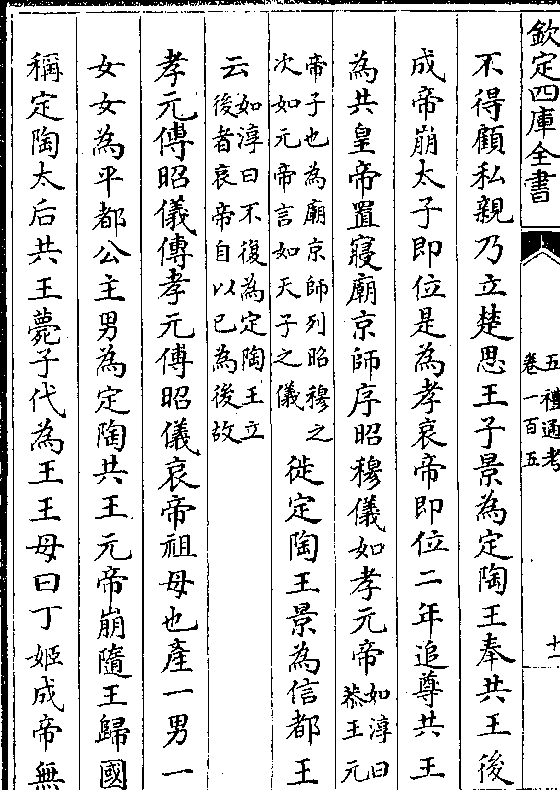 欽定四庫全書
五禮通考
卷一百五
十一
不得顧私親乃立楚思王子景為定陶王奉共王後
成帝崩太子即位是為孝哀帝即位二年追尊共王
為共皇帝置寢廟京師序昭穆儀如孝元帝如淳曰恭王元
帝子也為廟京師列昭穆之次如元帝言如天子之儀徙定陶王景為信都王
云如淳曰不復為定陶王立後者哀帝自以已為後故
孝元傅昭儀傳孝元傅昭儀哀帝祖母也產一男一
女女為平都公主男為定陶共王元帝崩隨王歸國
稱定陶太后共王薨子代為王王母曰丁姬成帝無